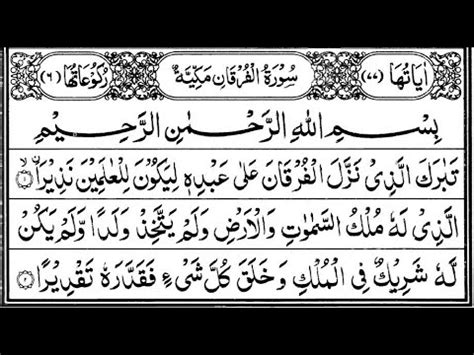 اٰيَاتُهَا (٧٧) سُوْرَةُ الْفُرْقَانِ مَكِّيَّةٌ رُكُوْعَاتُهَا (٦)
بِسْمِ اللهِ الرَّحْمٰنِ الرَّحِيْمِ
تَبٰرَكَ الَّذِىْ نَزَّلَ الْفُرْقَانَ عَلٰى عَبْدِهٖ لِيَكُوْنَ لِلْعٰلَمِيْنَ نَذِيْرًا ۙ‏﴿١﴾
الَّذِىْ لَهٗ مُلْكُ السَّمٰوٰتِ وَالْاَرْضِ وَلَمْ يَتَّخِذْ وَلَدًا وَّلَمْ يَكُنْ
لَّهٗ شَرِيْكٌ فِى الْمُلْكِ وَخَلَقَ كُلَّ شَىْءٍ فَقَدَّرَهٗ تَقْدِيْرًا ﴿٢﴾